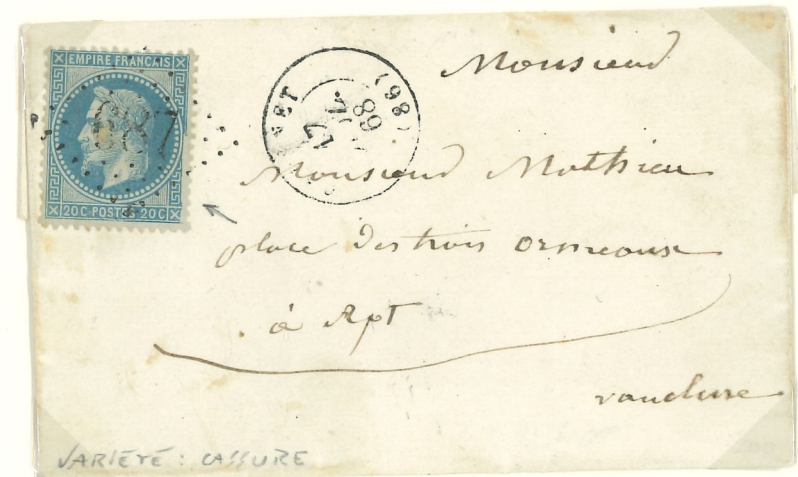 EMPIRE FRANÇAIS
20C POSTES 20C
(86)
68
Monsieur
Monsieur Mathieu
place des trois ormeaux
à Apt
vaucluse
VARIÉTÉ : CASSURE